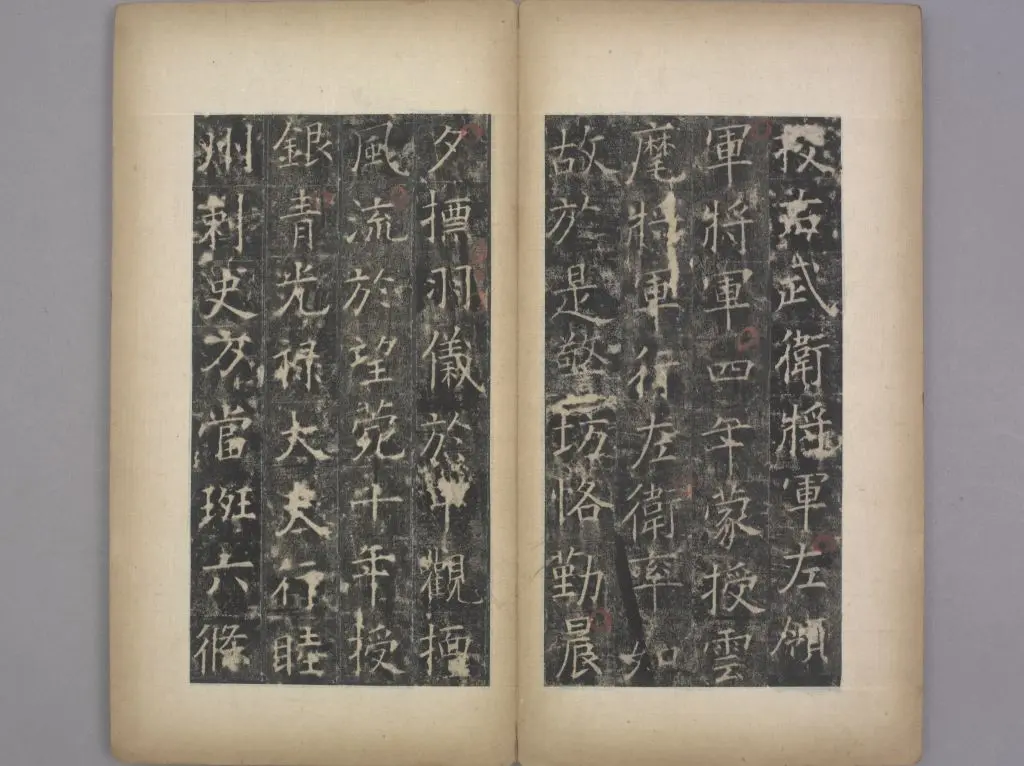 授右武衛將軍左領
軍將軍四年蒙授雲
麾將軍行左衛率如
故於是警蹕恪勤晨
夕摽羽儀於甲觀擅
風流於望菀十年授
銀青光祿大夫行睦
州刺史方當班六條